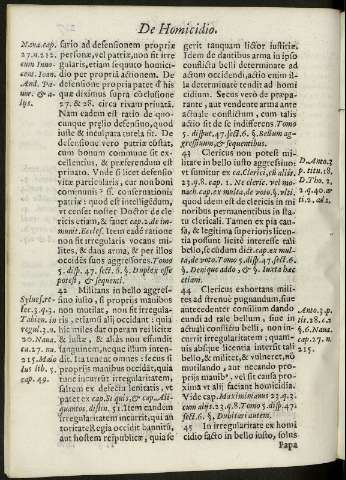 De Homicidio.
Nana.cap.
27.n.212.
cum Inno-
cent. Ioan.
And. Pa-
nor. & a-
lys.
sario ad defensionem propriæ
personæ, vel patriæ, non sit irre
gularis, etiam sequuto homici-
dio per propriā actionem. De
defensione propria patet ex his
quæ diximus supra cōclusione
27. & 28. circa rixam priuatā.
Nam eadem est ratio de quo-
cunque prælio defensiuo, quod
iuste & inculpata tutela sit. De
defensione vero patriæ cōstat,
cum bonum commune sit ex-
cellentius, & præferendum est
priuato. Vnde si licet defensio
vitæ particularis, cur non boni
communis? sf. conseruationis
patriæ: quod est intelligēdum,
vt censet noster Doctor de cle
ricis etiam, & tenet cap. 2. de im-
munit. Eccles. Item eadē ratione
non fit irregularis vocans mi-
lites, & dans arma, & per illos
occidēs suos aggressores. Tomo
5. disp. 47. sect. 6. §. Duplex esse
potest, & sequenti.
Syluest. ver
ser. 3. q. 3.
Tabien. iu ris,
regul. 3. n.
20. Nana.
ca. 27. nu.
215. Maio
lus lib. 5.
cap. 49.
42 Militans in bello aggres-
siuo iusto, si propriis manibus
non mutilat, non fit irregula-
ris, etiamsi alij occidant: quia
hic miles dat operam rei licitæ
& iustæ, & aliàs non effundit
sanguinem, neque illum inten-
dit. Ita tenent omnes: secus si
propriis manibus occidat, quia
tunc incurrit irregularitatem,
saltem ex defectu lenitatis, vt
patet ex cap. Si quis, & cap. Ali-
quantos, distin. 51. Item eandem
irregularitatem incurrit, qui au
toritate Regia occidit bannitū,
aut hostem reipublicæ, quia se
gerit tanquam lictor iustitiæ.
Idem de dantibus arma in ipso
conflictu belli determinate ad
actum occidendi, actio enim il-
la determinate tendit ad homi
cidium. Secus verò de præpa-
rante, aut vendente arma ante
actualē conflictum, cum talis
actio sit de se indifferens. Tomo
5. disput. 47. sect. 6. §. Bellum ag-
gressiuum, & sequentibus.
43 Clericus non potest mi-
litare in bello iusto aggressiuo:
vt sumitur ex ca. Clerici, eū aliis,
23. q. 8. cap. 1. Ne cleric. vel mo-
nach. cap. ex multa, de voto. §. vlti.
quod idem est de clericis in mi
noribus permanentibus in sta-
tu clericali. Tamen ex pia cau-
sa, & legitima superioris licen-
tia possunt licitè interesse tali
bello, sc cūdum dict. cap. ex mul
ta, de voto. Tomo 5. disp. 47. sect.
6. §. Denique addo, & §. Iuxta hæc
etiam.
D. Anto. 3
p. titu. 18.
D. Tho. 2.
2. q. 40. ar
ti. 2. ad 2.
44 Clericus exhortans mili-
tes ad strenuè pugnandum, siue
antecedenter consilium dando
eundi ad tale bellum, siue in
actuali cōflictu belli, non in-
currit irregularitatem; quam-
uis absque licentia intersit tali
bello, & militet, & vulneret, nō
mutilando, aut necando pro-
priis manib⁹, vel sit causa pro-
xima vt alij faciant homicidia.
Vide cap. Maximianus 23. q. 3.
cum alijs. 23. q. 8. Tomo 5. disp. 47.
sect. 6. §. Dubitari autem.
Anto. 3. p.
tit. 28. c. 2
§. 6. Nana.
cap. 27. n.
215.
45 In irregularitate ex homi
cidio facto in bello iusto, solus
Papa